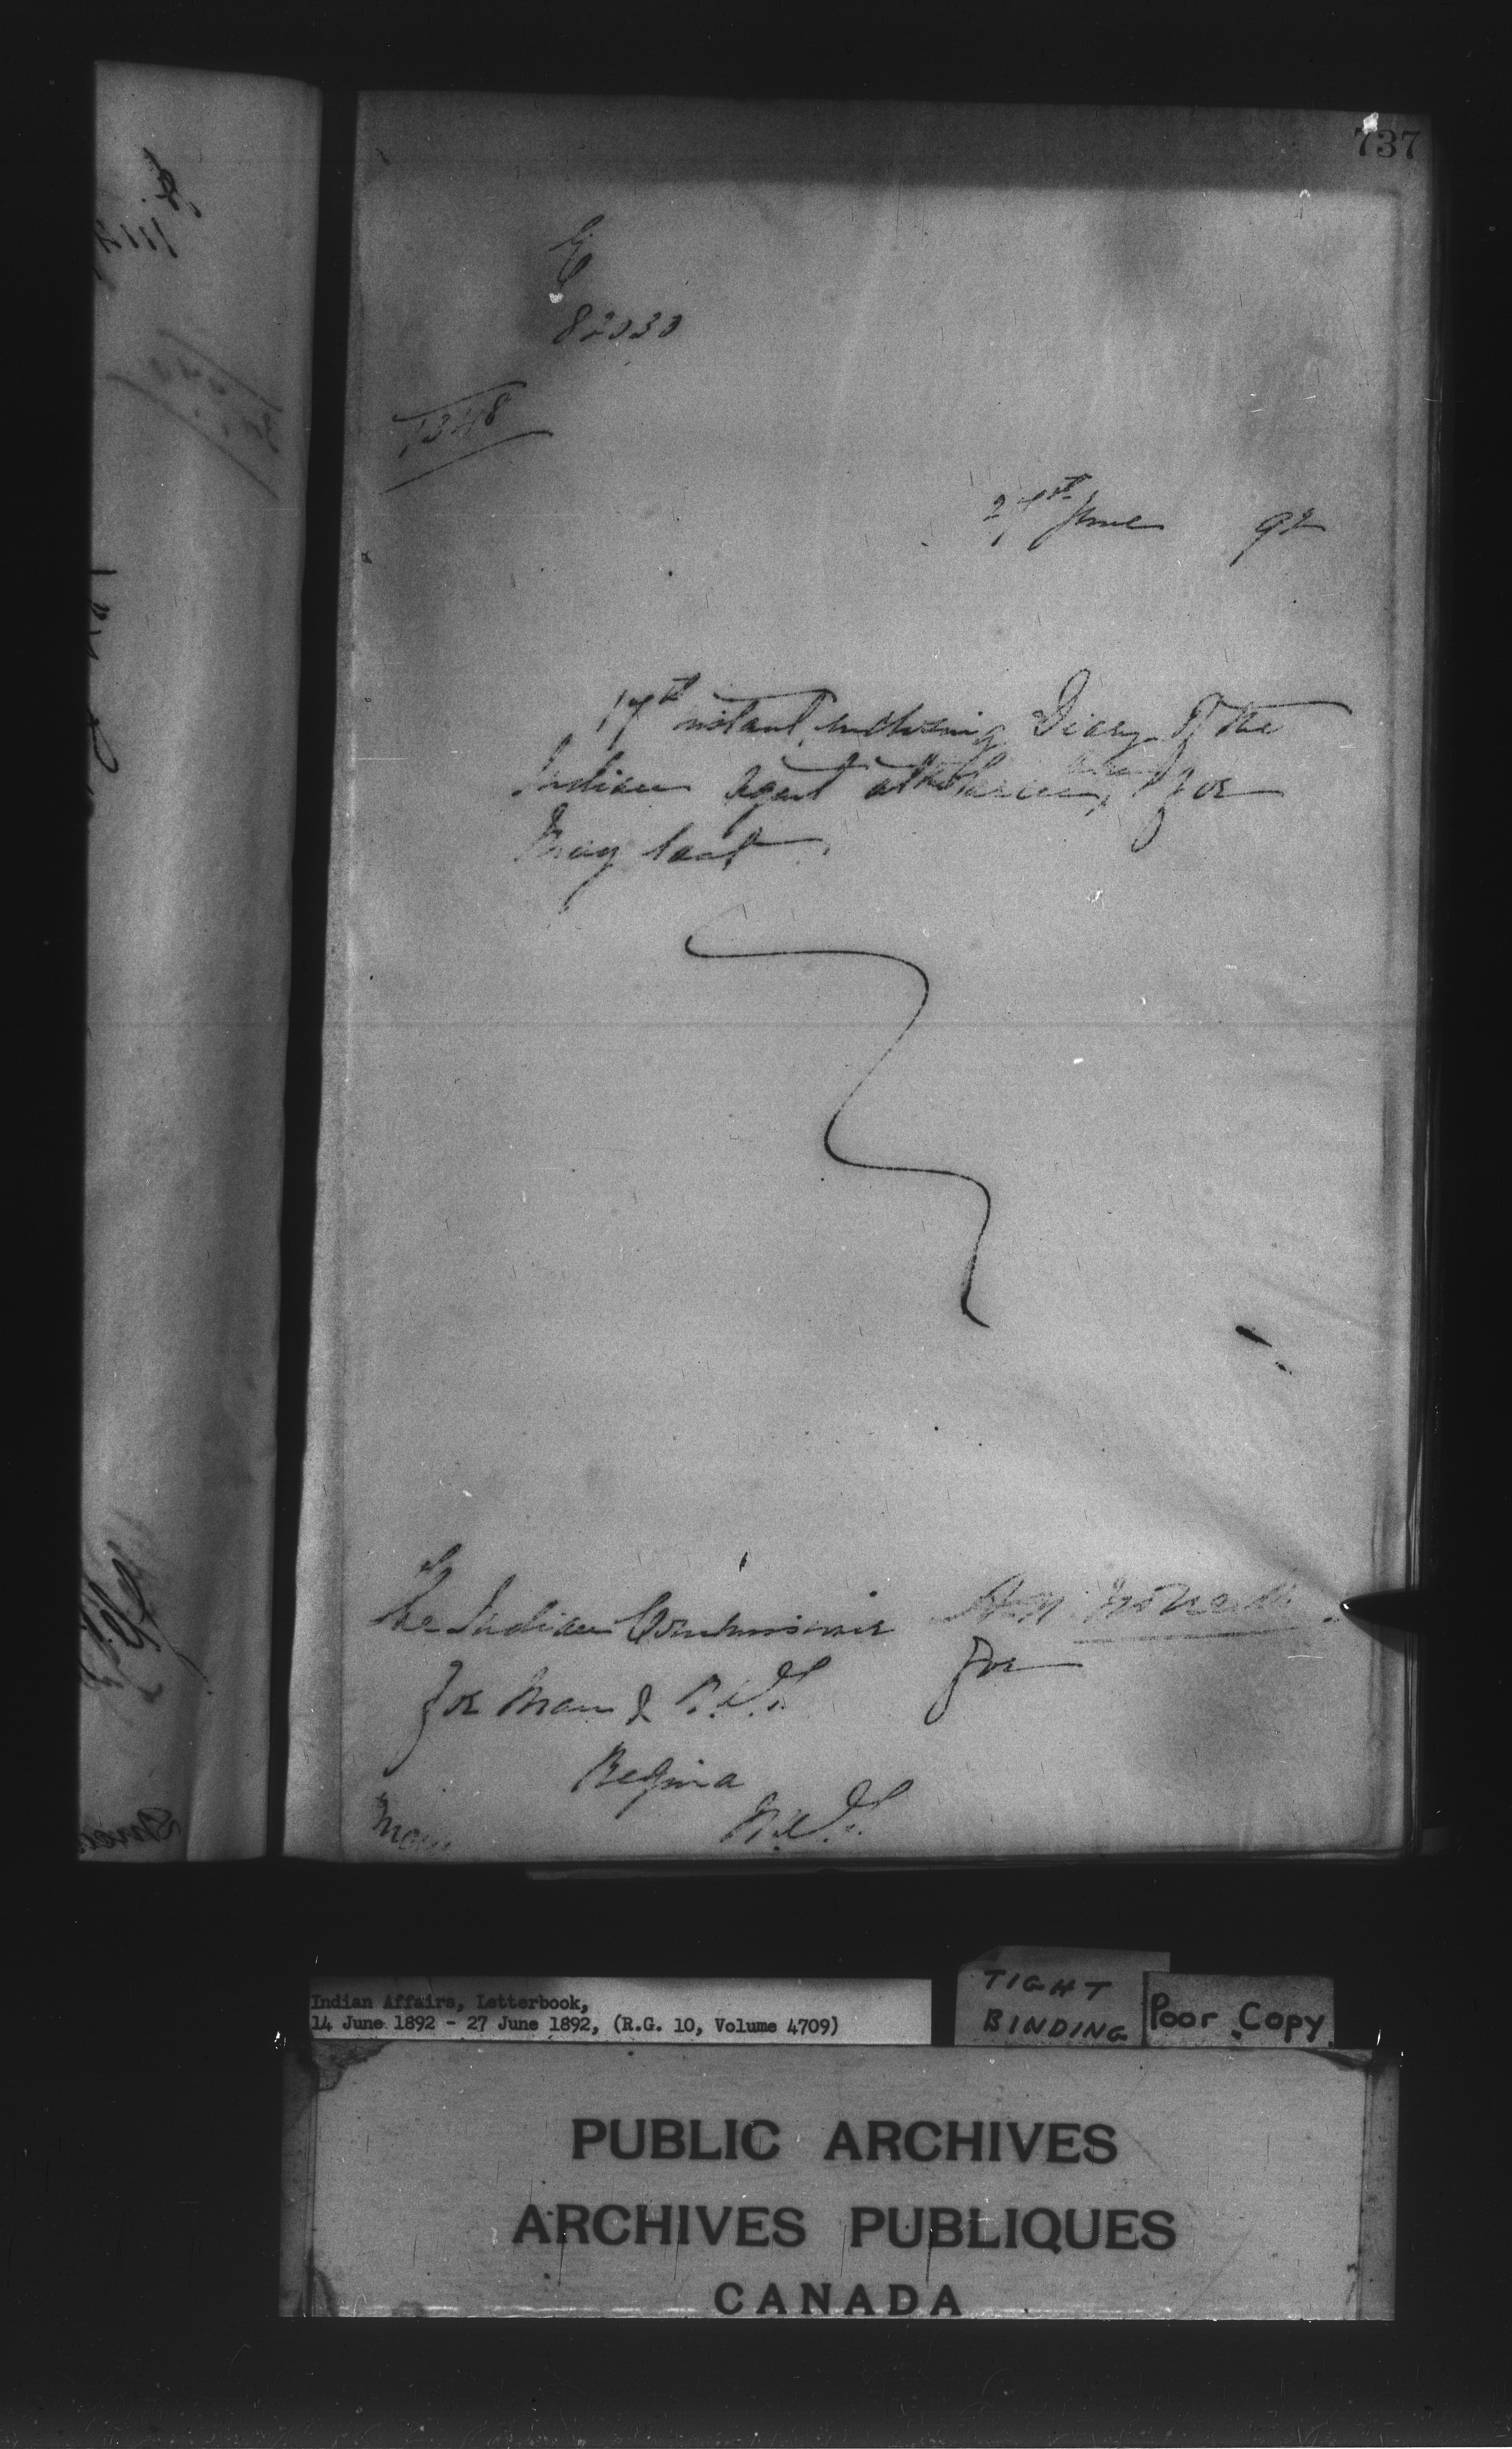 737
E
82030
1348
27th June 92
17th instant, enclosing Diary of the
Indian Agent at the Sarcee, for
May last.
The Indian Commissioner
for Man & N.W.T.
for
Regina
N.W.T.
Indian Affairs, Letterbook,
14 June 1892 - 27 June 1892, (R.G. 10, Volume 4709)
TIGHT
BINDING
Poor Copy
PUBLIC ARCHIVES
ARCHIVES PUBLIQUES
CANADA